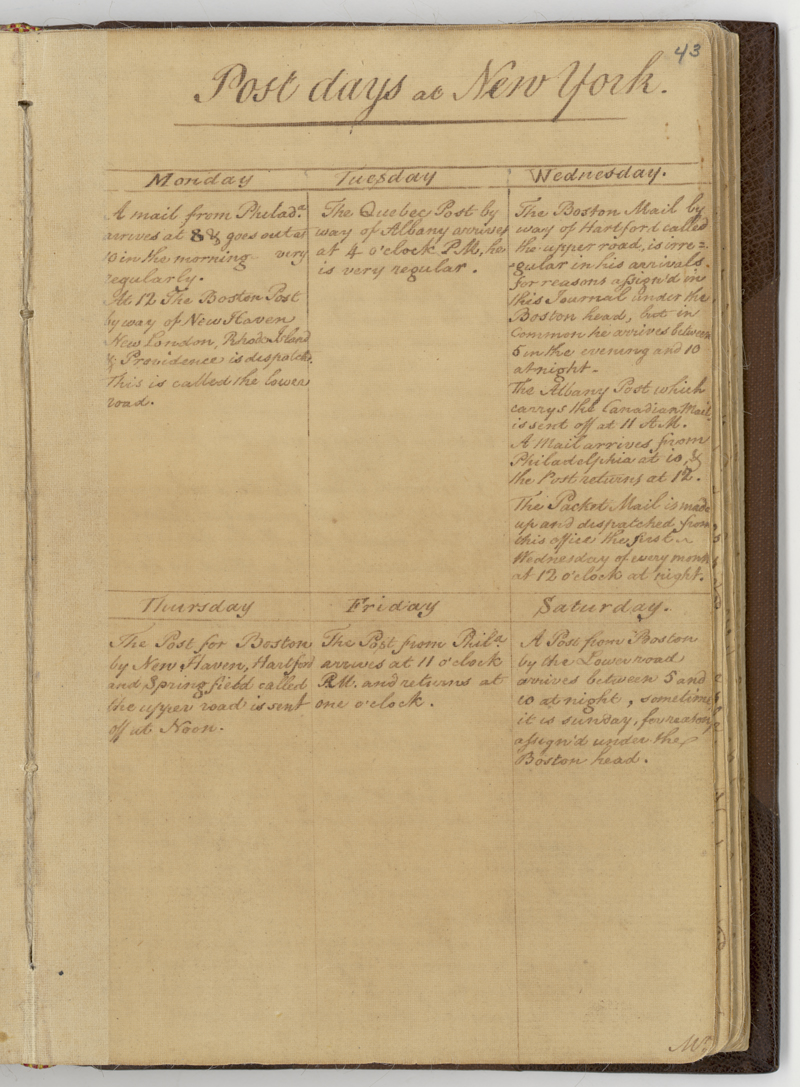 43
Post days at New York.
Monday
A mail from Philad.a
arrives at 8 & goes out at
10 in the morning very
regularly.
At 12 The Boston Post
by way of New Haven
New London, Rhode Island
& Providence is dispatch.
This is called the lower
road.
Tuesday
The Quebec Post by
way of Albany arrives
at 4 o'clock P.M, he
is very regular.
Wednesday.
The Boston Mail by
way of Hartford called
the upper road, is irre=
=gular in his arrivals.
for reasons assign'd in
this Journal under the
Boston head, but in
Common he arrives between
5 in the evening and 10
at night.
The Albany Post which
carrys the Canadian Mail
is sent off at 11 A.M.
A Mail arrives from
Philadelphia at 10, &
the Post returns at 12.
The Packet Mail is made
up and dispatched from
this office the first
Wednesday of every month
at 12 o'clock at night.
Thursday
The Post for Boston
by New Haven, Hartford
and Springfield called
the upper road is sent
off at Noon.
Friday
The Post from Phila.
arrives at 11 o'clock
P.M. and returns at
one o'clock.
Saturday.
A Post from Boston
by the Lower road
arrives between 5 and
10 at night, sometimes
it is sunday, for reasons
assign'd under the
Boston head.